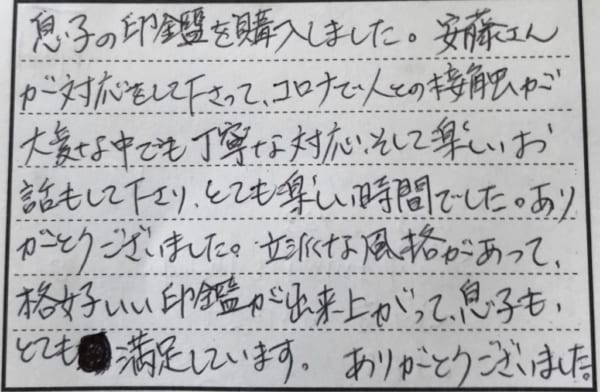 息子の印鑑を購入しました。安藤さん
が対応をして下さって、コロナで人との接触が
大変な中でも丁寧な対応、そして楽しいお
話もして下さり、とても楽しい時間でした。あり
がとうございました。立派な風格があって、
格好いい印鑑が出来上がって、息子も、
とても満足しています。ありがとうございました。